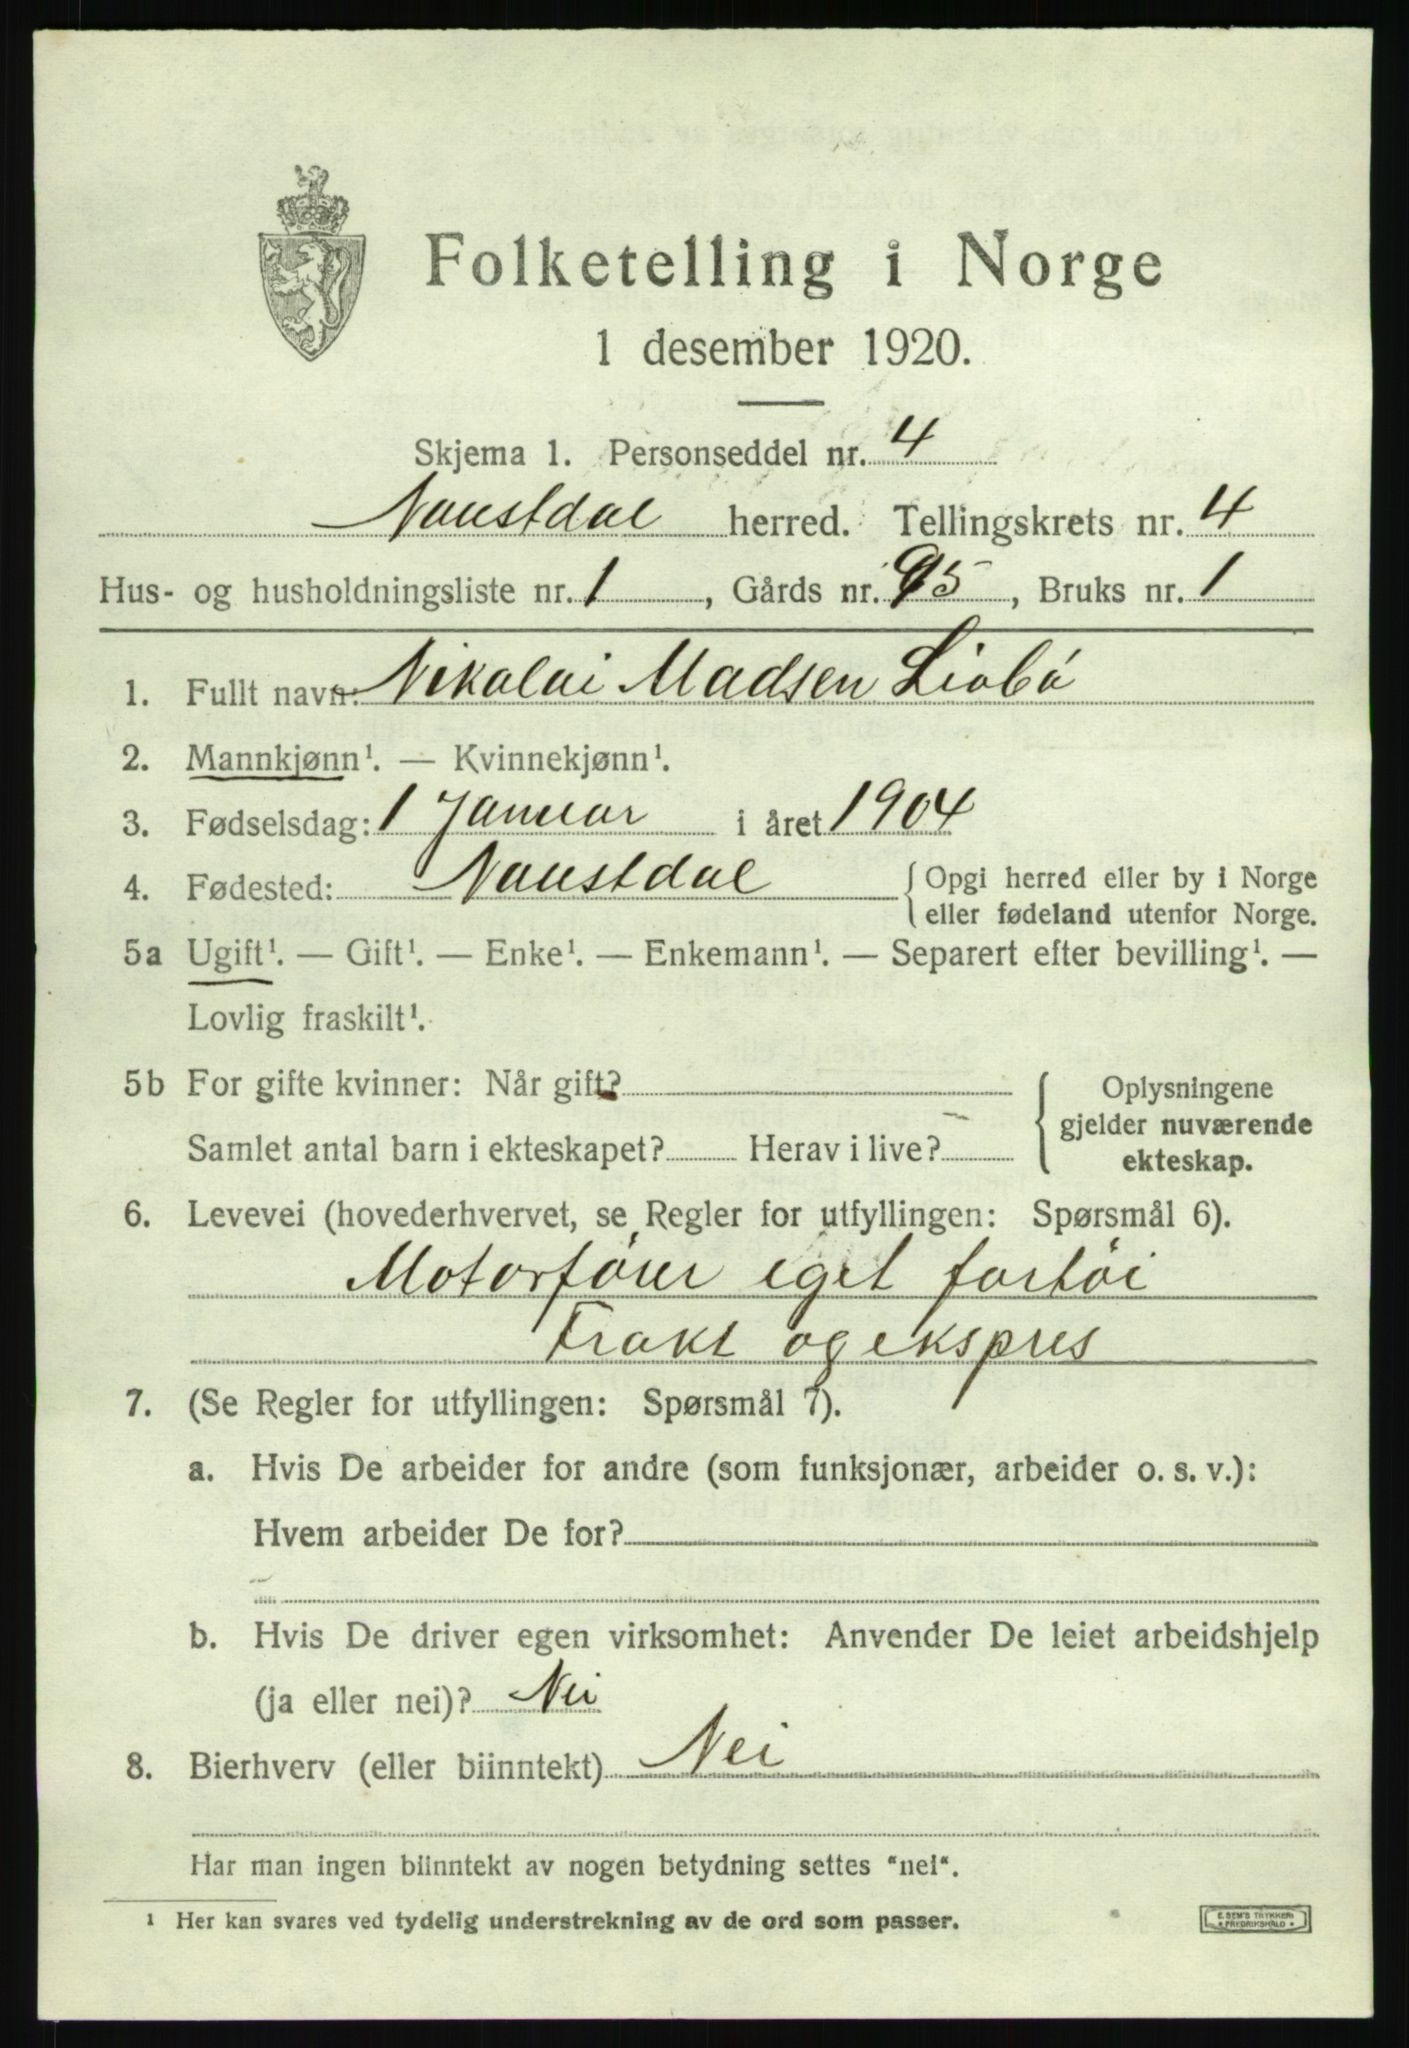 Folketelling i Norge
1 desember 1920.
Skjema 1. Personseddel nr. 4
Naustdal herred. Tellingskrets nr. 4
Hus- og husholdningsliste nr. 1, Gårds nr. 95, Bruks nr. 1
1. Fullt navn: Nikolai Madsen Liabó
2. Mannkjønn¹. — Kvinnekjønn¹.
3. Fødselsdag: 1 Januar i året 1904
4. Fødested: Naustdal { Opgi herred eller by i Norge
eller fødeland utenfor Norge.
5a Ugift¹. — Gift¹. — Enke¹. — Enkemann¹. — Separert efter bevilling¹. —
Lovlig fraskilt¹.
5b For gifte kvinner: Når gift?
Samlet antal barn i ekteskapet? Herav i live?
{ Oplysningene
gjelder nuværende
ekteskap.
6. Levevei (hovederhvervet, se Regler for utfyllingen: Spørsmål 6).
Motorfórer eget fartói
Frakt og ekspres
7. (Se Regler for utfyllingen: Spørsmål 7).
a. Hvis De arbeider for andre (som funksjonær, arbeider o. s. v.):
Hvem arbeider De for?
b. Hvis De driver egen virksomhet: Anvender De leiet arbeidshjelp
(ja eller nei)? Nei
8. Bierhverv (eller biinntekt) Nei
Har man ingen biinntekt av nogen betydning settes "nei".
¹ Her kan svares ved tydelig understrekning av de ord som passer.
E. SEM'S TRYKKERI
• FREDRIKSHALD •